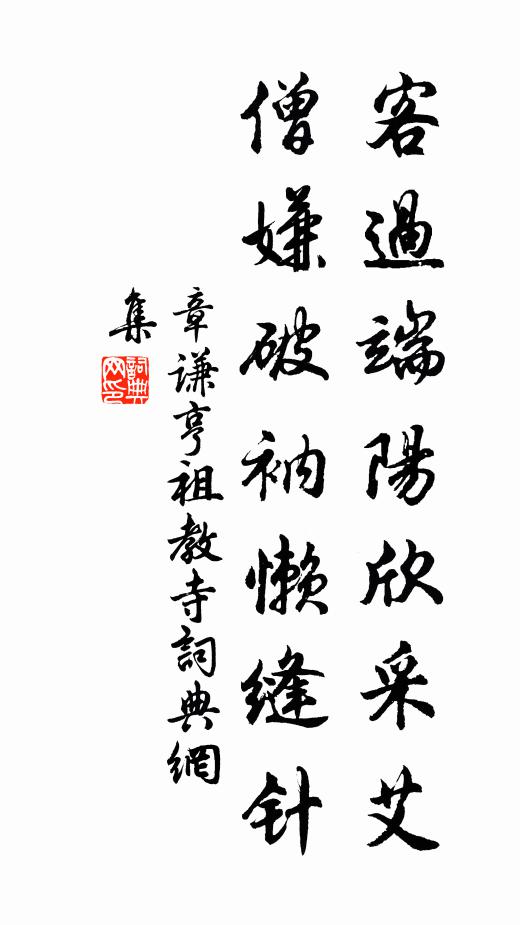 客過端陽欣采艾
僧嫌破衲懶縫针
章谦亨祖教寺詞典網
集
詞典网印